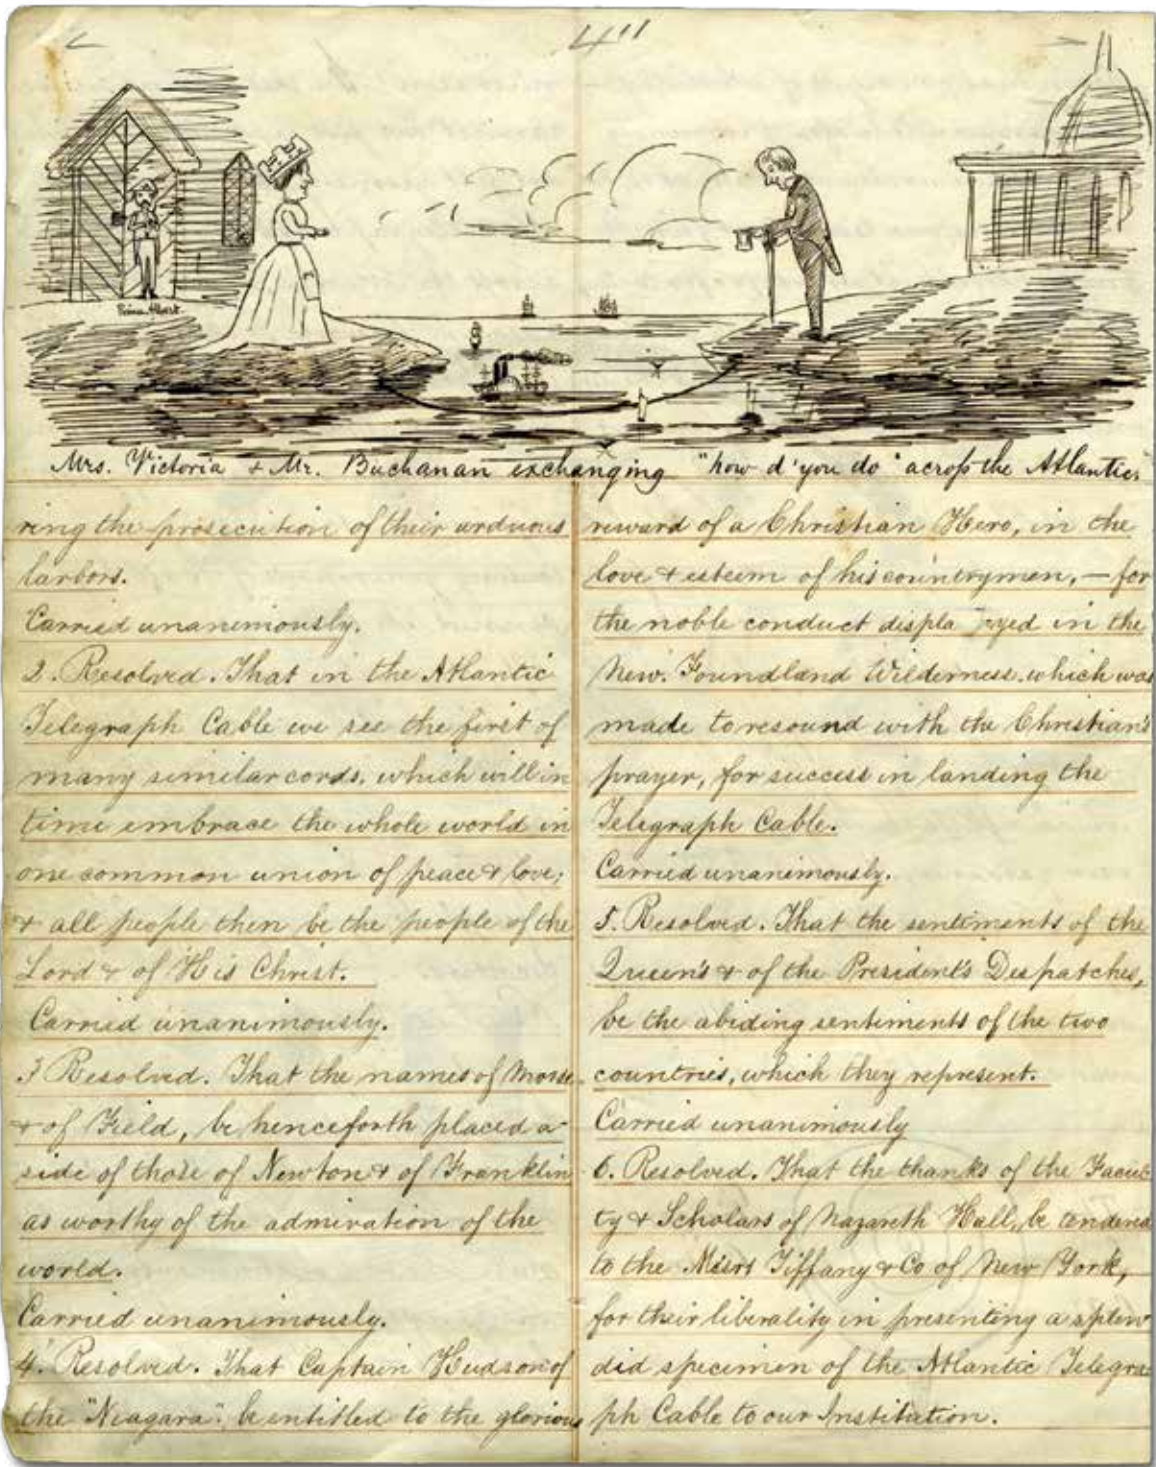 411
Prince Albert
Mrs. Victoria & Mr. Buchanan exchanging "how d'you do" across the Atlantic.
ring the prosecution of their arduous
larbors.
Carried unanimously.
2. Resolved. That in the Atlantic
Telegraph Cable we see the first of
many similar cords, which will in
time embrace the whole world in
one common union of peace & love;
& all people then be the people of the
Lord & of His Christ.
Carried unanimously.
3 Resolved. That the names of Morse
& of Field, be henceforth placed a-
side of those of Newton & of Franklin
as worthy of the admiration of the
world.
Carried unanimously.
4. Resolved. That Captain Hudson of
the "Niagara". be entitled to the glorious
reward of a Christian Hero, in the
love & esteem of his countrymen, — for
the noble conduct displa yed in the
New. Foundland Wilderness. which was
made to resound with the Christian's
prayer, for success in landing the
Telegraph Cable.
Carried unanimously.
5. Resolved. That the sentiments of the
Queen's & of the President's Despatches,
be the abiding sentiments of the two
countries, which they represent.
Carried unanimously
6. Resolved. That the thanks of the Facul-
ty & Scholars of Nazareth Hall, be tendered
to the Misrs Tiffany & Co of New York,
for their liberality in presenting a splen-
did specimen of the Atlantic Telegra-
ph Cable to our Institution.